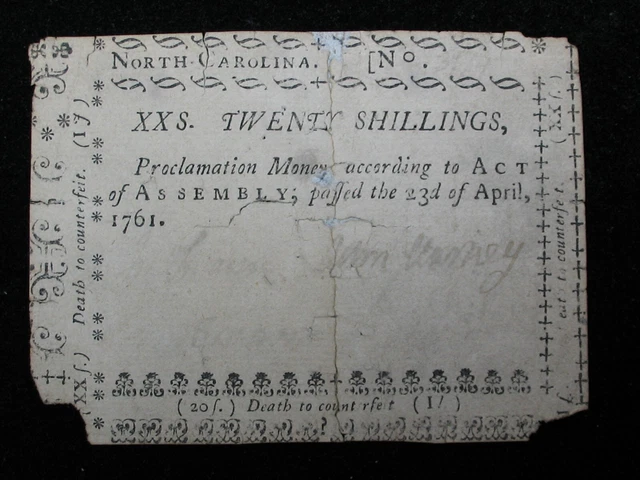 NORTH·CAROLINA. [No.
XXS. TWENTY SHILLINGS,
Proclamation Money according to ACT
of ASSEMBLY; paſſed the 23d of April,
1761.
(20ſ.) Death to counterfeit (1l)
Death to counterfeit.
(XXſ.)
(XXſ)
to counterfeit.